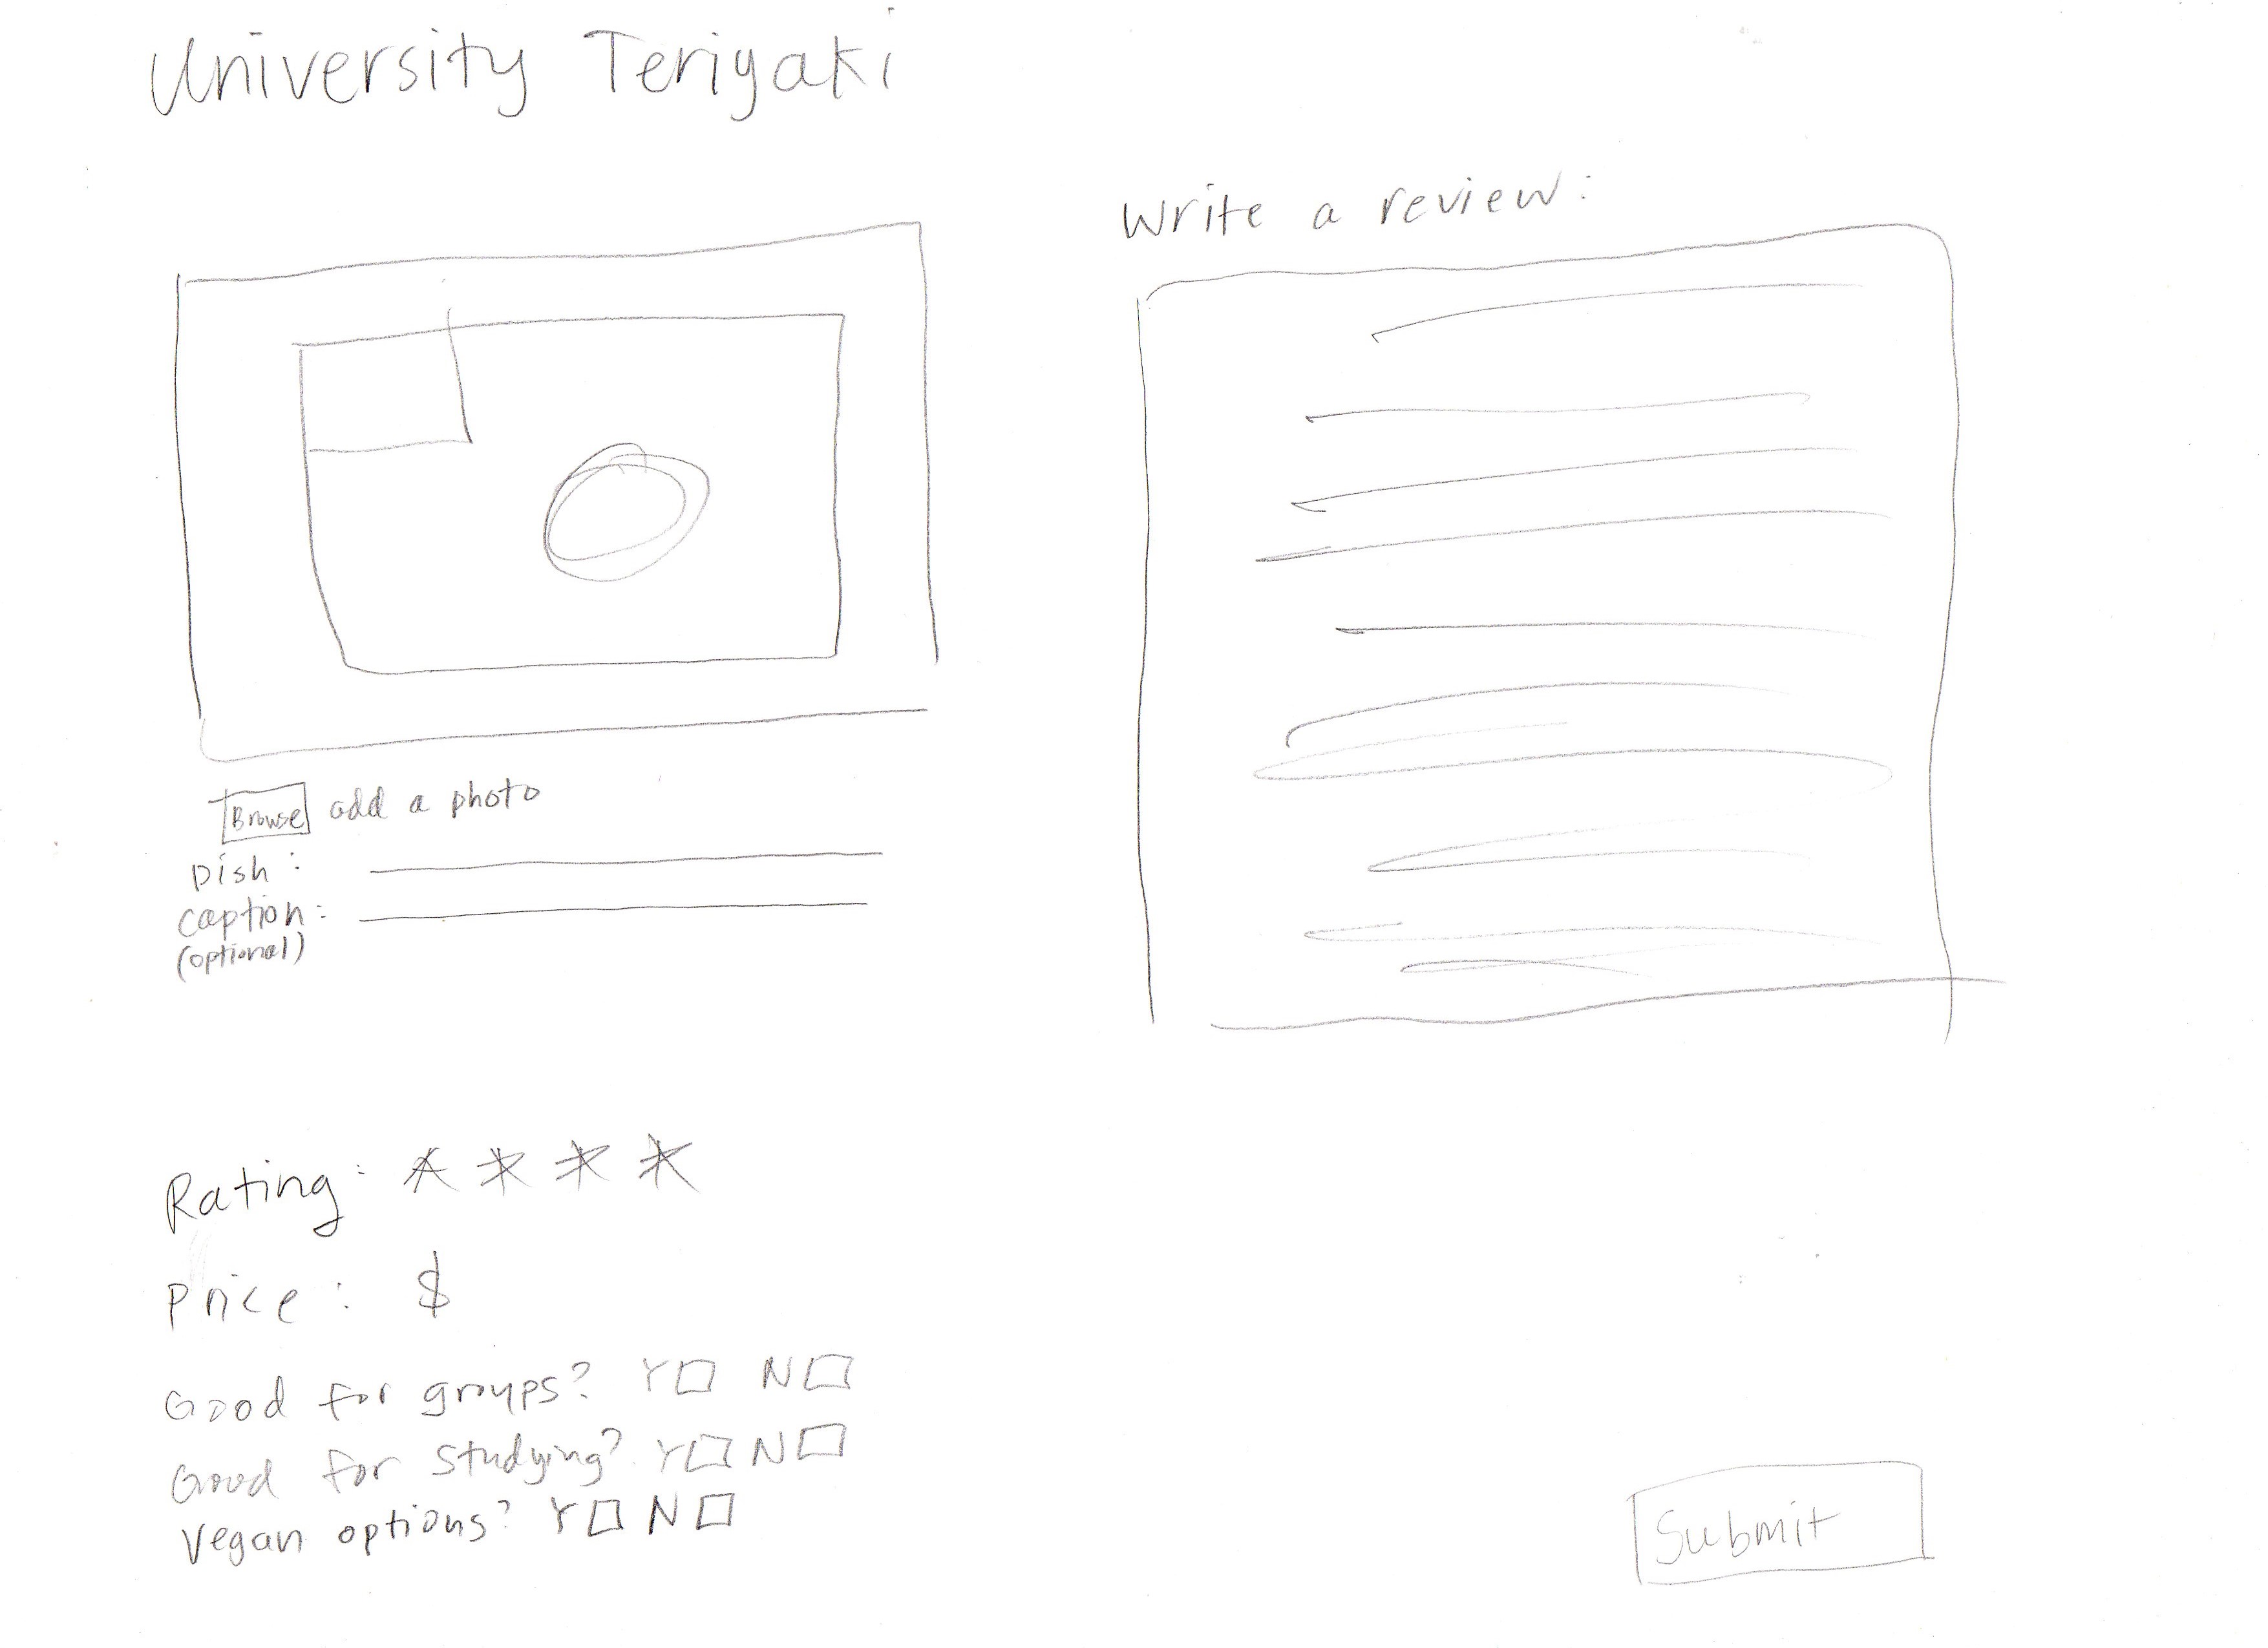 University Teriyaki
Write a review:
Browse add a photo
Dish:
caption:
(optional)
Rating:
Price: $
Good for groups? Y N
Good for studying? Y N
Vegan options? Y N
Submit